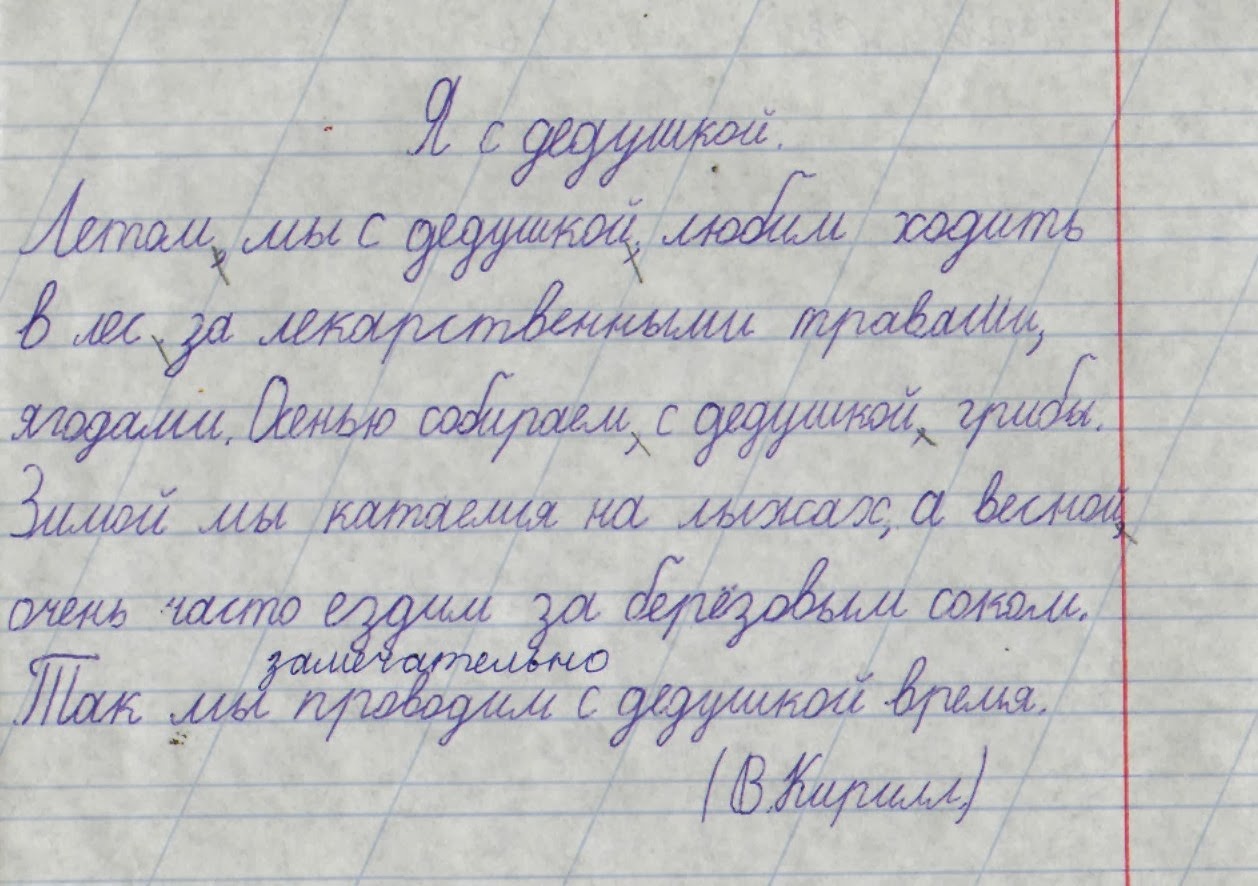 Я с дедушкой.
Летом, мы с дедушкой, любим ходить
в лес, за лекарственными травами,
ягодами. Осенью собираем, с дедушкой, грибы.
Зимой мы катаемся на лыжах, а весной,
очень часто ездим за берёзовым соком.
замечательно
Так мы проводим с дедушкой время.
(В.Кирилл.)